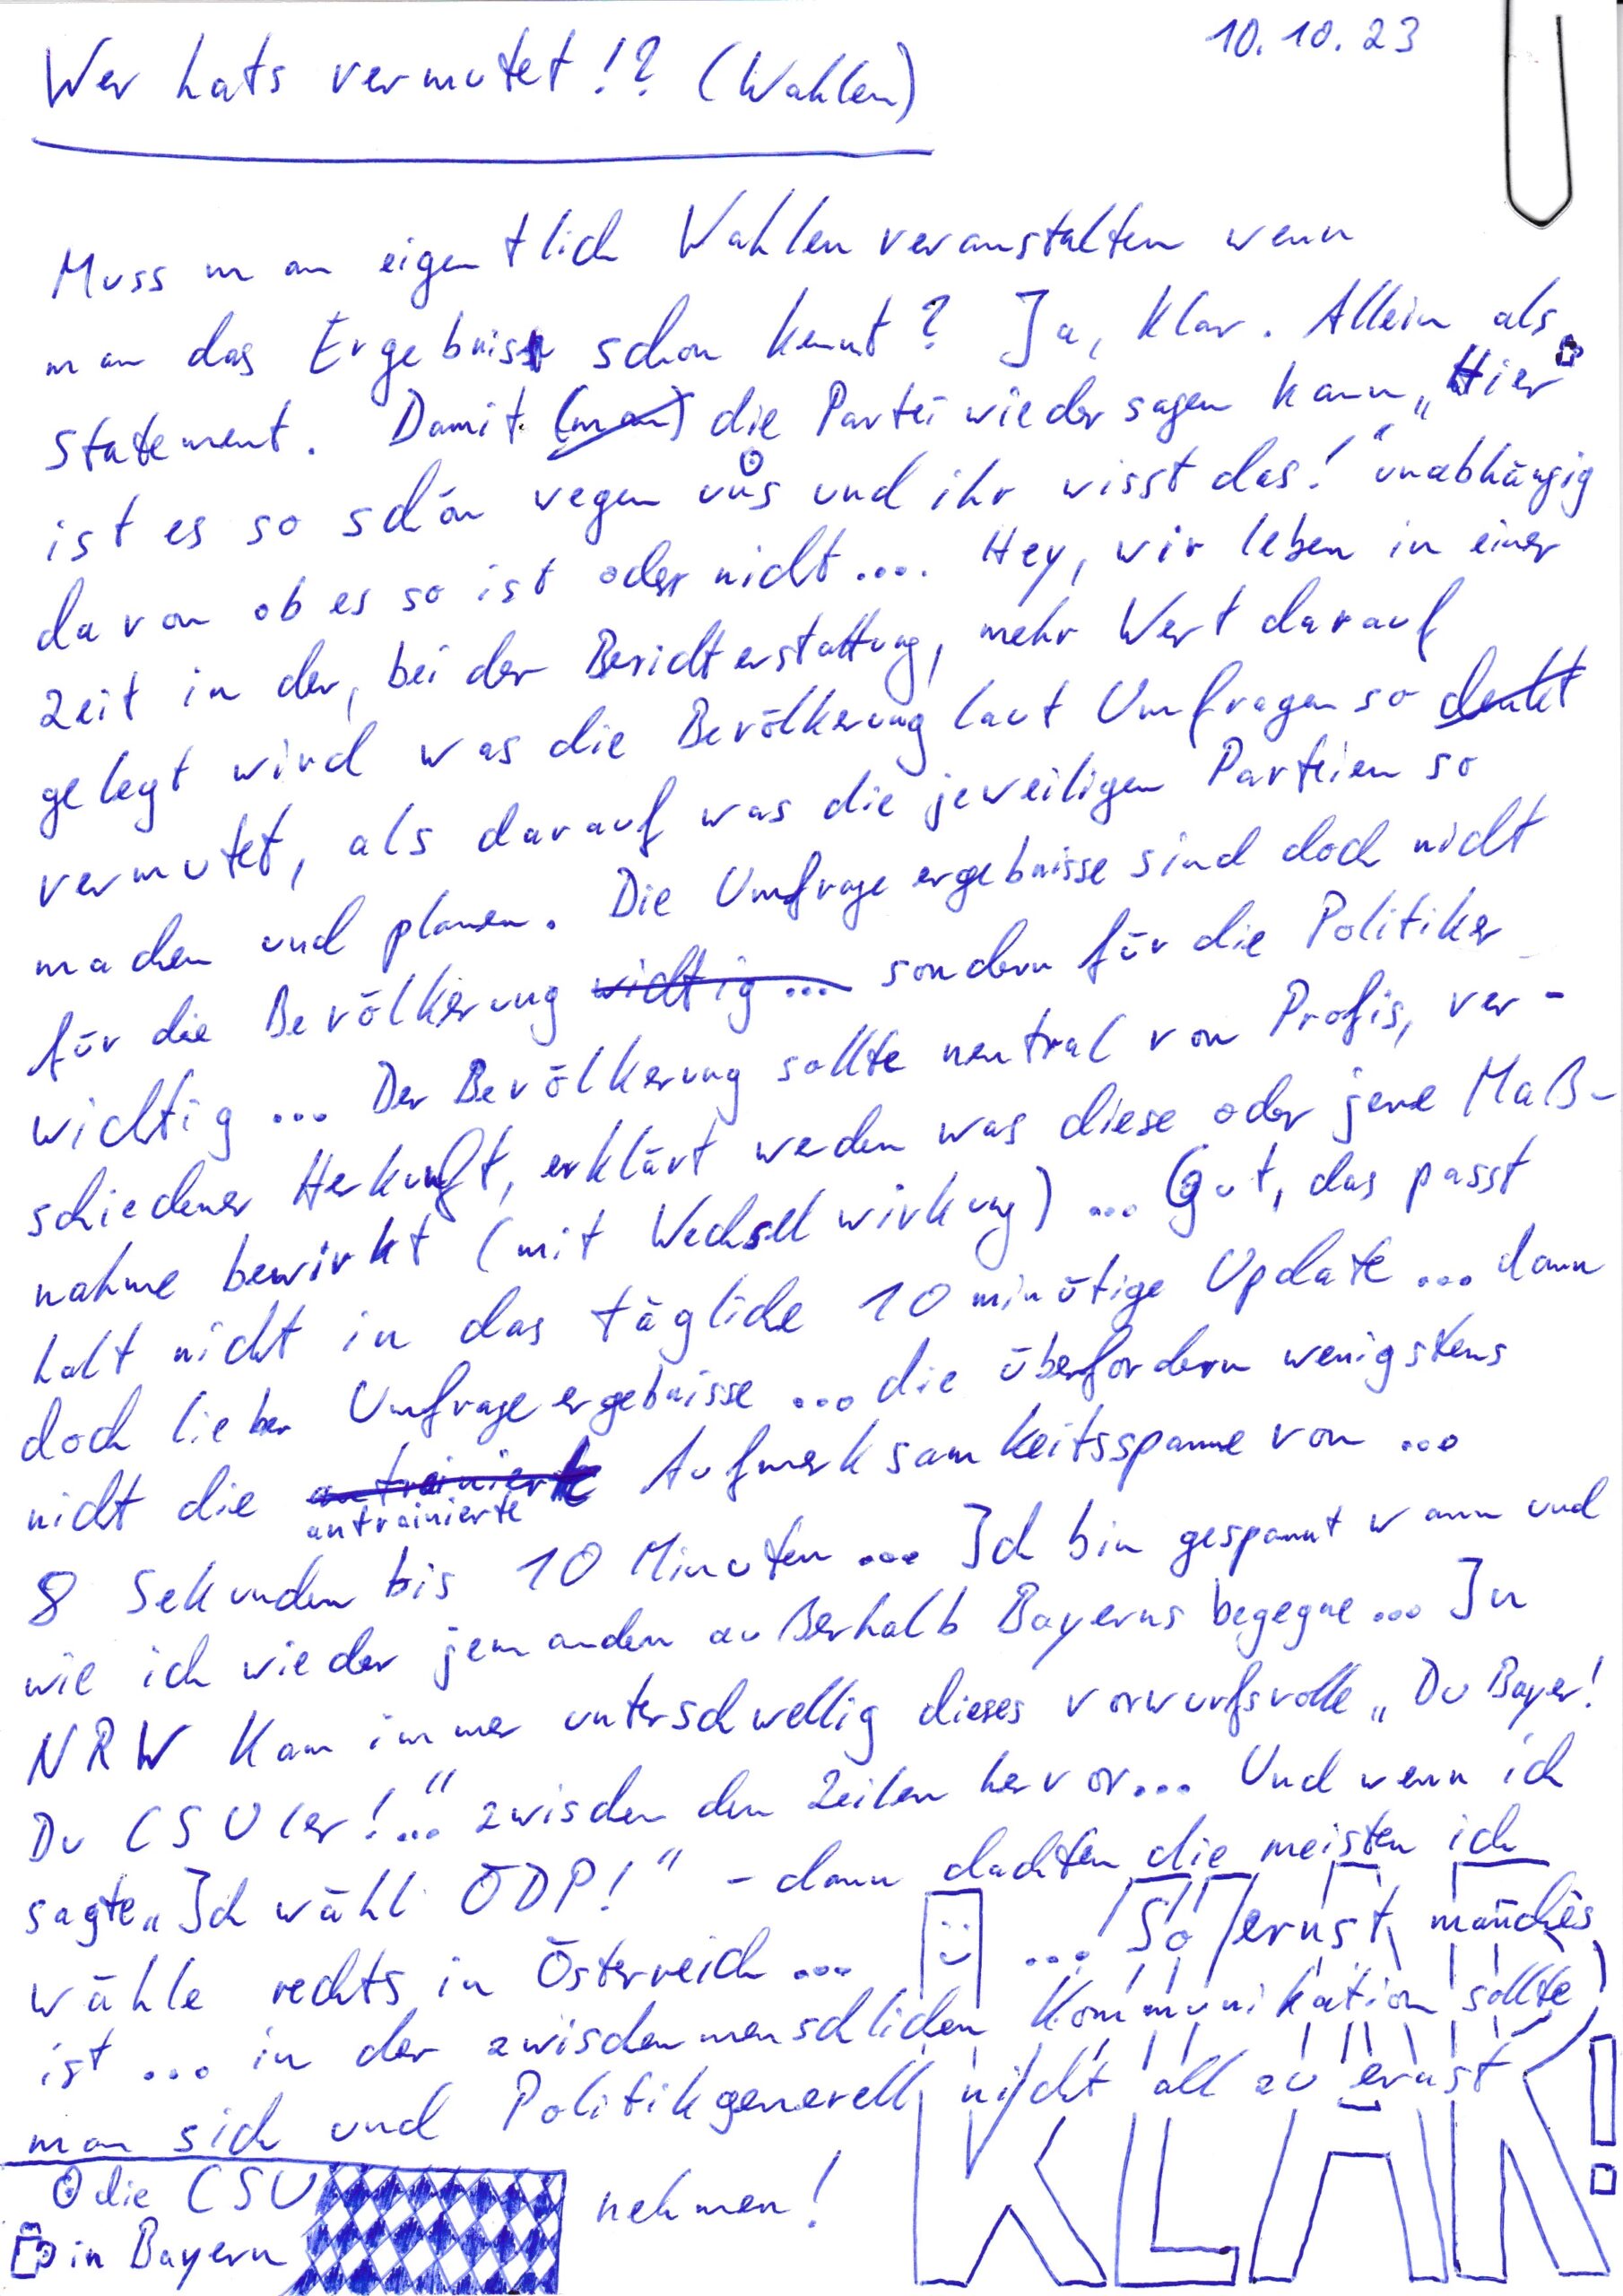 10.10.23
Wer hats vermutet!? (Wahlen)
Muss man eigentlich Wahlen veranstalten wenn
man das Ergebniss schon kennt? Ja, klar. Allein als
Statement. Damit (man) die Partei wieder sagen kann „Hier
ist es so schön wegen uns und ihr wisst das!“ unabhängig
davon ob es so ist oder nicht.... Hey, wir leben in einer
Zeit in der, bei der Berichterstattung, mehr Wert darauf
gelegt wird was die Bevölkerung laut Umfragen so denkt
vermutet, als darauf was die jeweiligen Parteien so
machen und planen. Die Umfrageergebnisse sind doch nicht
für die Bevölkerung wichtig... sondern für die Politiker
wichtig ... Der Bevölkerung sollte neutral von Profis, ver-
schiedener Herkunft, erklärt werden was diese oder jene Maß-
nahme bewirkt (mit Wechselwirkung) ... Gut, das passt
halt nicht in das tägliche 10 minütige Update ... dann
doch lieber Umfrageergebnisse ... die überfordern wenigstens
nicht die antrainierte Aufmerksamkeitsspanne von ...
antrainierte
8 Sekunden bis 10 Minuten ... Ich bin gespannt wann und
wie ich wieder jemanden außerhalb Bayerns begegne ... In
NRW kam immer unterschwellig dieses vorwurfsvolle „Du Bayer!
Du CSUler!...“ zwischen den Zeilen hervor... Und wenn ich
sagte „Ich wähl ÖDP!“ - dann dachten die meisten ich
wähle rechts in Österreich ... ... So ernst manches
ist ... in der zwischenmenschlichen Kommunikation sollte
man sich und Politik generell nicht all zu ernst
nehmen!
die CSU
in Bayern
KLAR!